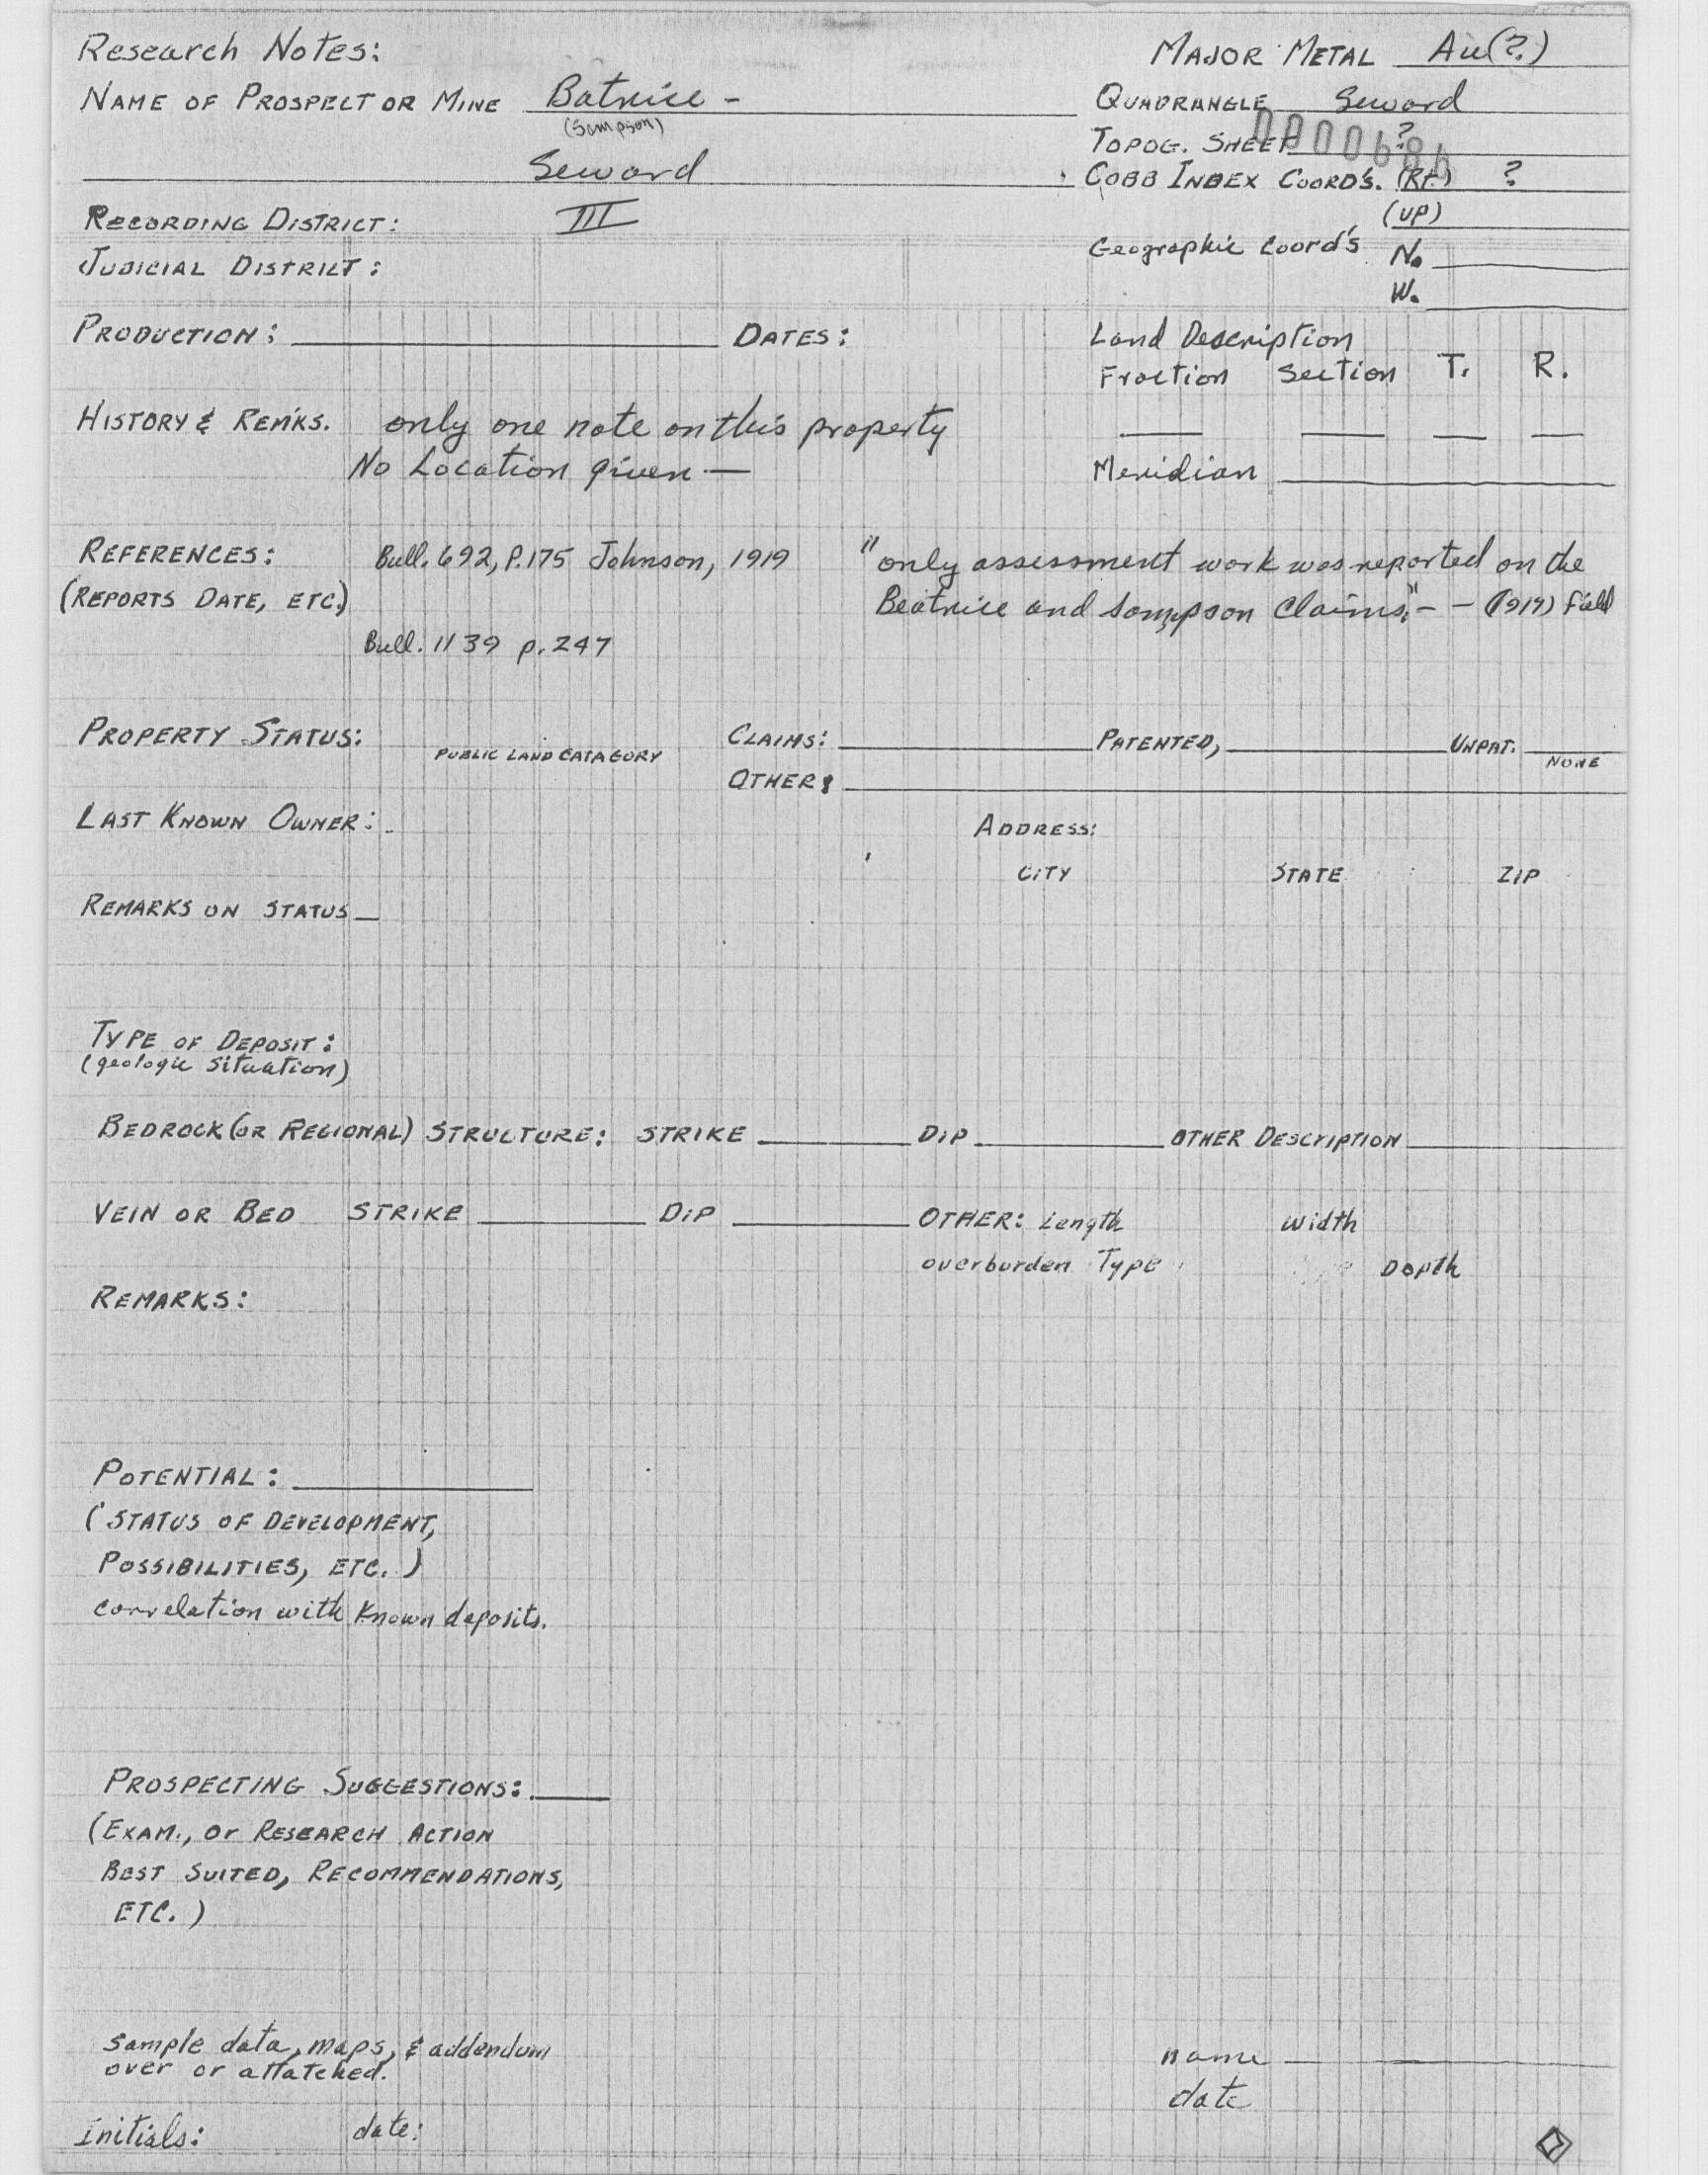 Research Notes:
MAJOR METAL Au(?)
NAME OF PROSPECT OR MINE Batrice -
(Sampson)
QUADRANGLE Seward
TOPOG. SHEET ?
Seward
COBB INDEX COORD'S. (Rt.) ?
(UP)
RECORDING DISTRICT: III
Geographic Coord's N.
JUDICIAL DISTRICT:
W.
PRODUCTION: DATES:
Land Description
Fraction Section T. R.
HISTORY & REM'KS. only one note on this property
No Location given —
Meridian
REFERENCES: Bull. 692, P.175 Johnson, 1919 "only assessment work was reported on the
(REPORTS DATE, ETC.) Beatrice and Sampson Claims." - - (1919) field
Bull. 1139 p. 247
PROPERTY STATUS: CLAIMS: PATENTED, UNPAT.
PUBLIC LAND CATAGORY NONE
OTHER:
LAST KNOWN OWNER: ADDRESS:
CITY STATE ZIP
REMARKS ON STATUS
TYPE OF DEPOSIT:
(geologic situation)
BEDROCK (OR REGIONAL) STRUCTURE: STRIKE DIP OTHER DESCRIPTION
VEIN OR BED STRIKE DIP OTHER: Length width
overburden Type Depth
REMARKS:
POTENTIAL:
(STATUS OF DEVELOPMENT,
POSSIBILITIES, ETC.)
correlation with known deposits.
PROSPECTING SUGGESTIONS:
(EXAM., or RESEARCH ACTION
BEST SUITED, RECOMMENDATIONS,
ETC.)
sample data, maps, & addendum
over or attatched.
name
date
Initials: date: